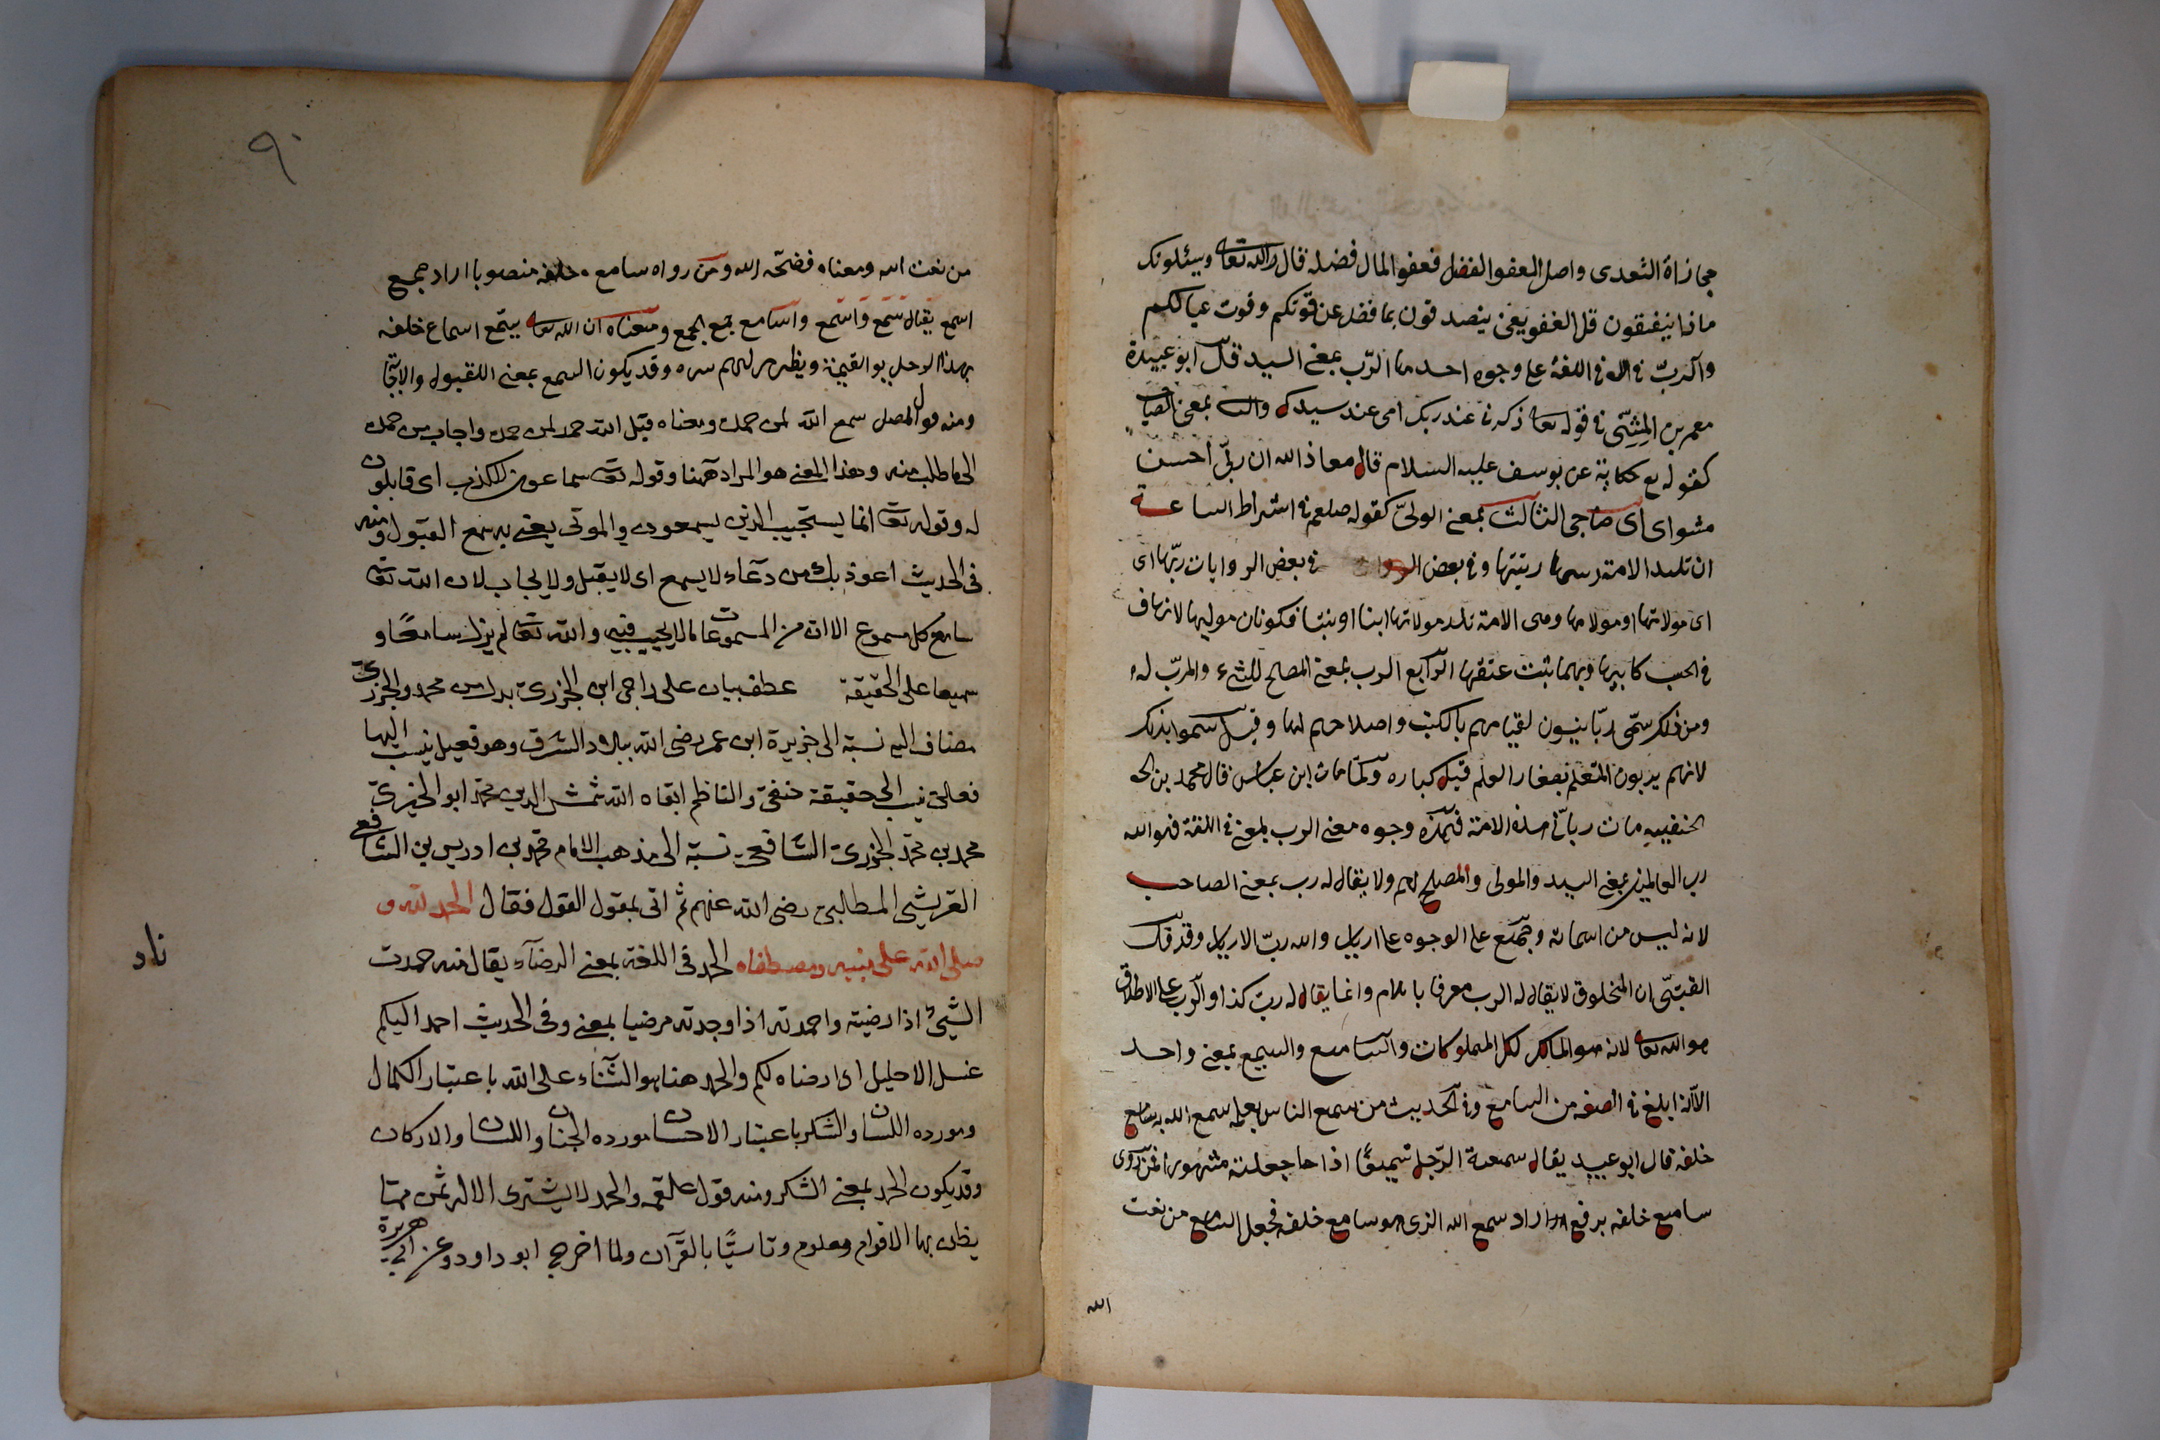 مجازاة التعدى واصل العفو الفضل فعفو المال فضله قال الله تعا ويسئلونك
ماذا ينفقون قل العفو يعنى ينصدقون بما فضل عن قوتكم وقوت عيالكم
والرب فى اللغة على وجوه احدها الرب بمعنى السيد قال ابو عبيدة
معمر بن المثنى فى قوله تعا اذكرنى عند ربك اى عند سيدك والثانى بمعنى الصاحب
كقوله تع حكاية عن يوسف عليه السلام قال معاذ الله ان ربى احسن
مثواى اى صاحبى الثالث بمعنى الولى كقوله صلعم فى اشراط الساعة
ان تلد الامة ربتها وفى بعض فى بعض الروايات ربها اى
اى مولاتها او مولاها ومى الامة تلد مولاتها ابنا او بنتا فكونان موليها لانها ف
فى الحسب كابيها وبهما ثبت عتقها الرابع الرب بمعنى المصلح للشئ والمرب له
ومن ذلك سمى ربانيون لقيامهم بالكتب واصلاحهم لها وقيل سموا بذلك
لانهم يربون المتعلم بصغار العلم قبل كباره ولما مات ابن عباس قال محمد بن الح
الحنفيه مات ربانى هذه الامة فهذه وجوه معنى الرب بمعنى فى اللغة فهو الله
رب العالمين بمعنى السيد والمولى والمصلح لهم ولا يقال له رب بمعنى الصاحب
لانه ليس من اسمائه وجمع على الوجوه على ارباب والله رب الارباب وقد قال
القتبى ان المخلوق لا يقال له الرب معرفا بالام وانما يقال له رب كذا والرب على الاطلاق
هو الله تعا لانه هو المالك لكل المملوكات والسامع والسميع بمعنى واحد
الا انه ابلغ فى الصفه من السامع وفى الحديث من سمع الناس بعمله سمع الله به سامع
خلقه قال ابو عبيد يقال سمعت الرجل تسميعا اذا ما جعلته مشهورا فمن روى
سامع خلقه برفع اراد سمع الله الذى هو سامع خلقه فجعل السامع من نعت
الله
٩٠
من نعت الله ومعناه فضحه الله ومن رواه سامع خلقه منصوبا اراد جمع
اسمع يقال سمع واسمع واسامع جمع الجمع ومعناه ان الله تعا يسمع اسماع خلقه
بهذا الرجل يوم القيمة ويظهر لهم سره وقد يكون السمع بمعنى القبول والاجابة
ومنه قول المصلى سمع الله لمن حمده ومعناه قبل الله حمد لمن حمده واجاب من حمده
الى ما طلب منه وهذا المعنى هو المراد ههنا وقوله تعا سماعون للكذب اى قابلون
له وقوله تعا انما يستجيب الذين يسمعون والموتى يعنى به سمع القبول ومنه
فى الحديث اعوذ بك من دعاء لا يسمع اى لا يقبل ولا يجاب لان الله تعا
سامع كل مسموع الا ان من المسموعات مالا يجيب فيه والله تعا لم يزل سامعا و
سميعا على الحقيقة عطف بيان على راجى ابن الجزرى بدل من محمد والجزرى
مضاف اليه نسبة الى جزيرة ابن عمر رضى الله ببلاد الشرق وهو فعيل ينسب اليها
فعالى نسب الى حقيقة حنفى والناظم ابقاه الله شمس الدين محمد ابو الخير
محمد بن محمد الجزرى الشافعى نسبة الى مذهب الامام محمد بن ادريس بن الشافعى
القريشى المطالبى رضى الله عنهم ثم اتى بمقول القول فقال الحمد لله و
صلى الله على نبيه ومصطفاه الحمد فى اللغة بمعنى الرضاء يقال منه حمدت
الشئ اذا رضيته واحمدته اذا وجدته مرضيا بمعنى وفى الحديث احمد اليكم
غسل الاحليل اى ارضاه لكم والحمد هنا هو الثناء على الله باعتبار الكمال
ومورده اللسان والشكر باعتبار الاحسان مورده الجنان واللسان والاركان
وقد يكون الحمد بمعنى الشكر ومنه قول علقمه والحمد لا يشترى الا له ثمن مما
يظن بها الاقوام معلوم وتاسيا بالقرآن ولما اخرج ابو داود وعن ابى هريرة